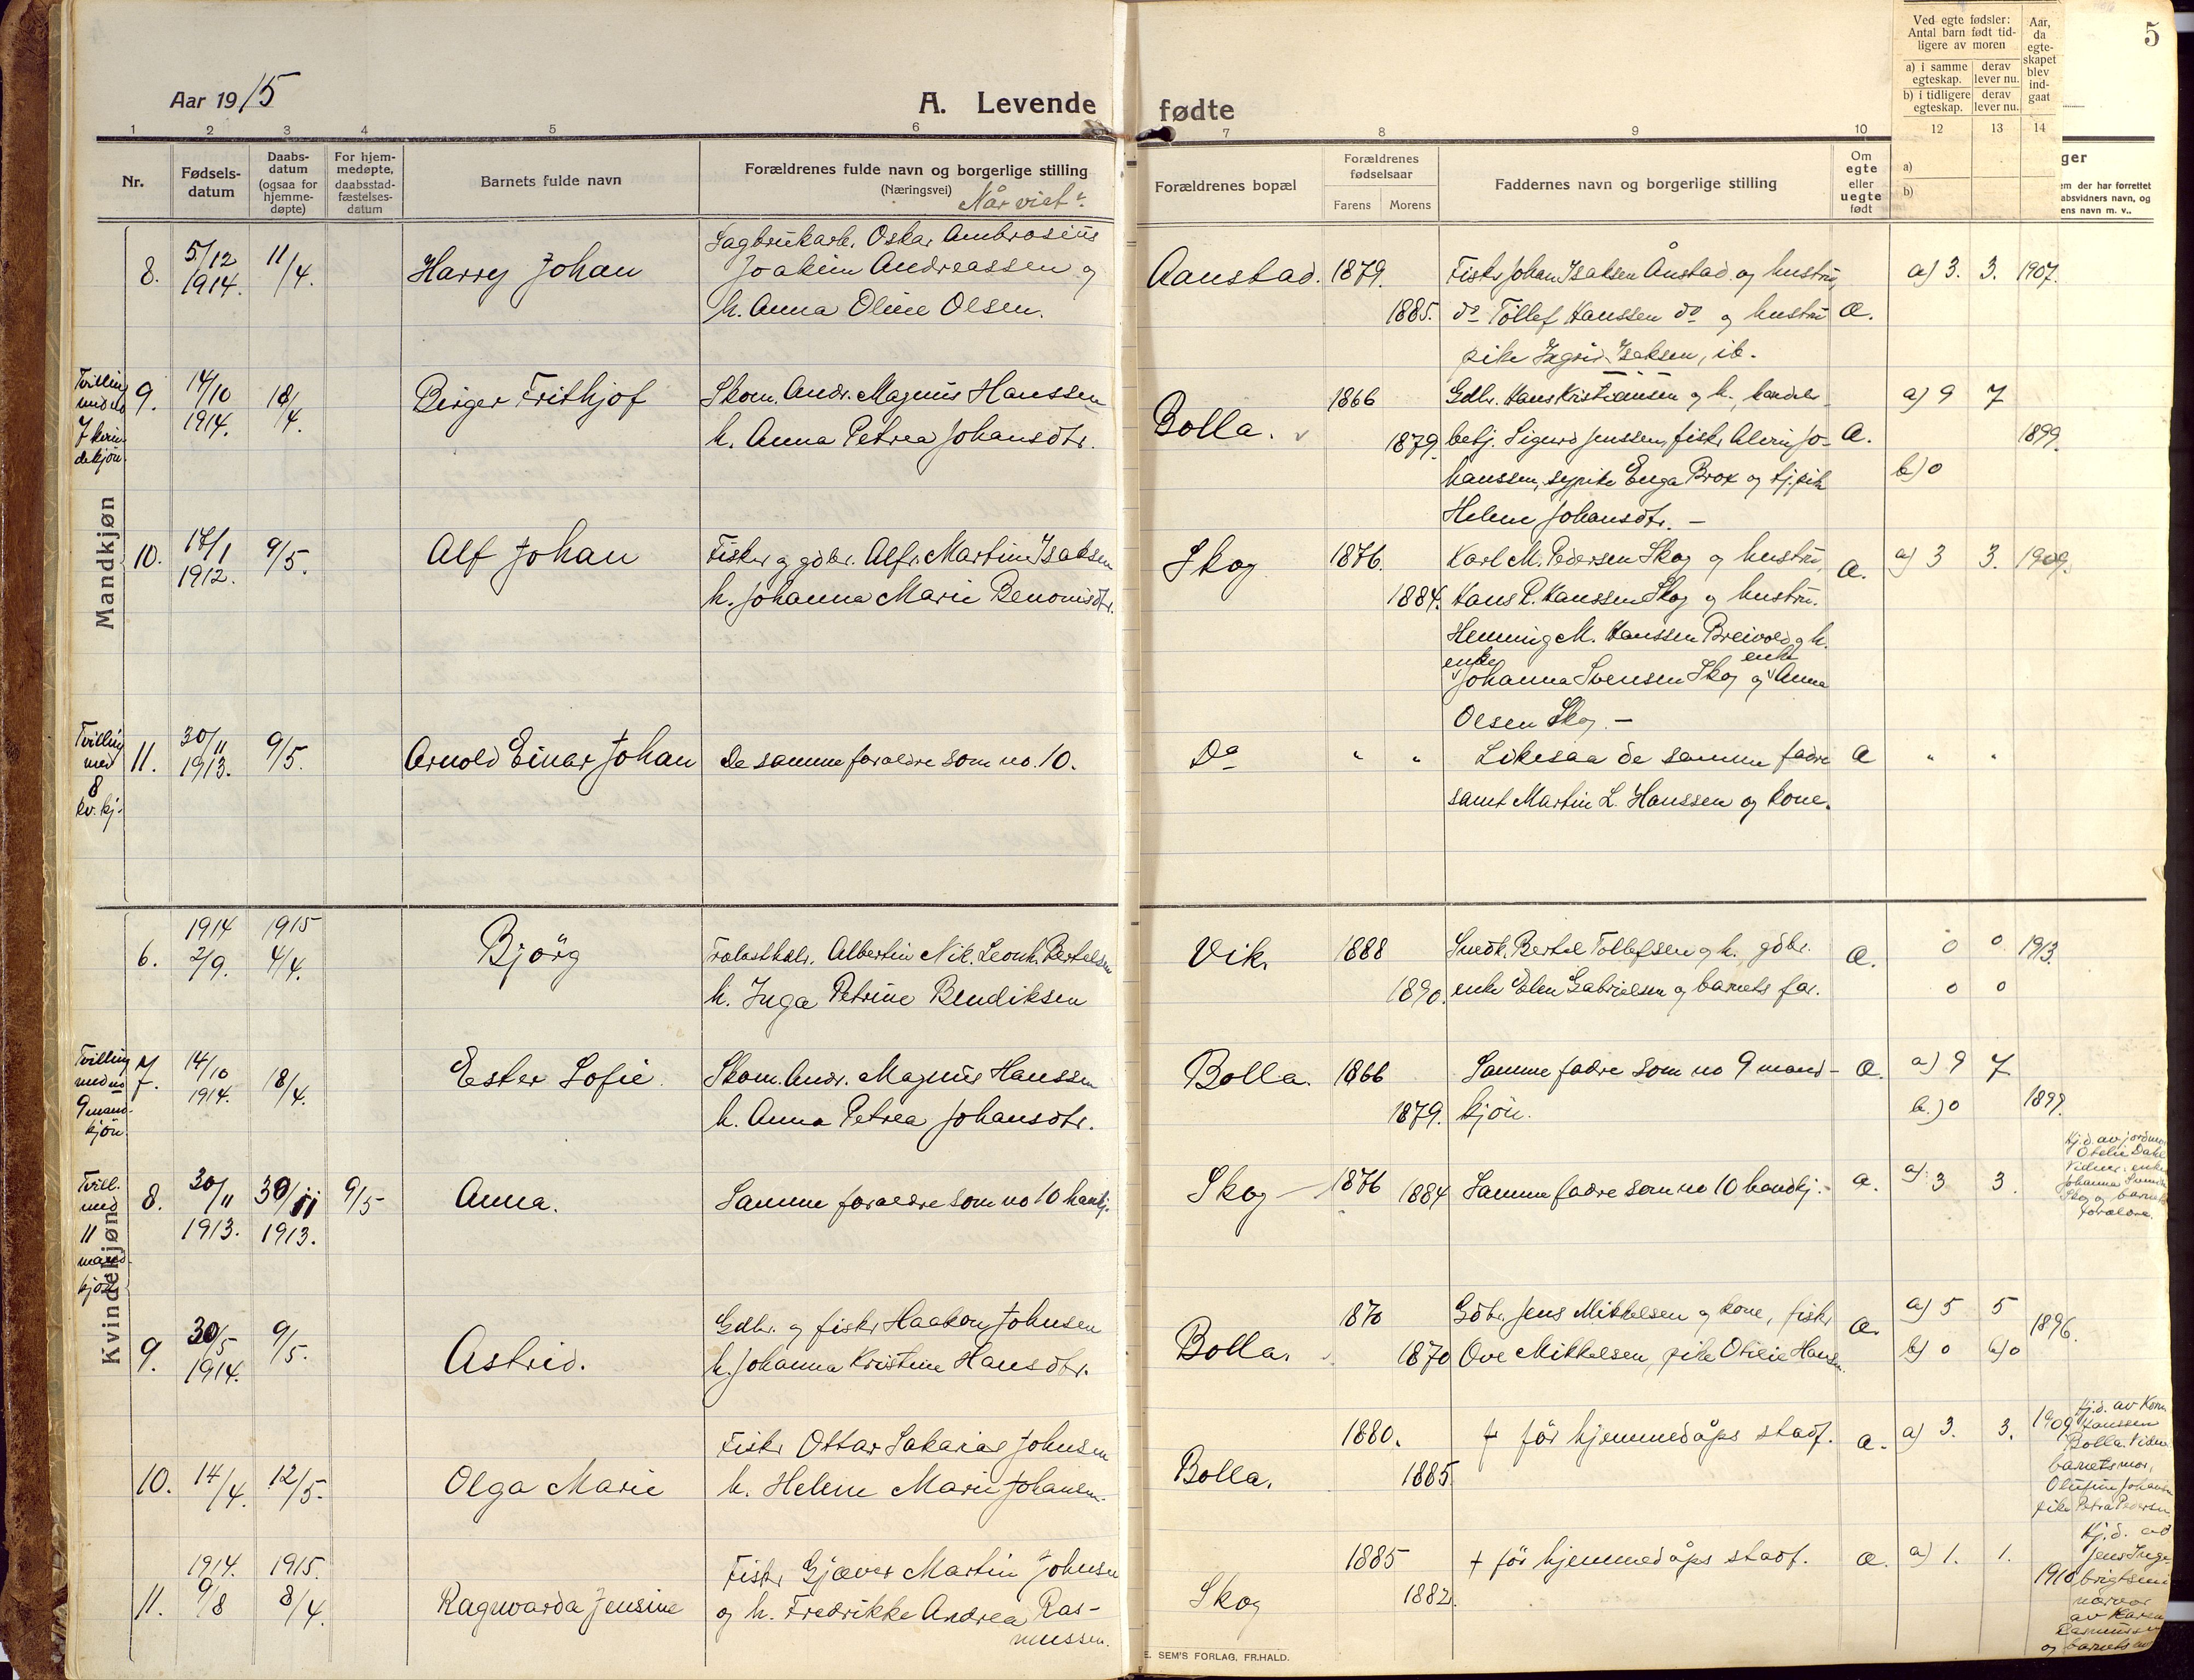 Aar 1915
A. Levende
fødte
5
Ved egte fødsler:
Antal barn født tid-
ligere av moren
a) i samme egteskap. derav lever nu.
b) i tidligere egteskap. derav lever nu.
Aar, da egte-skapet blev ind-gaat
1 2 3 4 5 6 7 8 9 10 12 13 14
Nr.
Fødsels-datum
Daabs-datum (ogsaa for hjemme-døpte)
For hjem-medøpte, daabsstad-fæstelses-datum
Barnets fulde navn
Forældrenes fulde navn og borgerlige stilling
(Næringsvei) Når viet
Forældrenes bopæl
Forældrenes fødselsaar
Farens Morens
Faddernes navn og borgerlige stilling
Om egte eller uegte født
a)
b)
ger
em der har forrettet
absvidners navn, og
ens navn m. v..
Mandkjøn
8. 5/12 1914. 11/4. Harry Johan
Sagbrukarb. Oskar Ambrosius
Joakim Andreassen og
h. Anna Oline Olsen.
Aanstad. 1879. 1885.
Fisker Johan Isaksen Ånstad og hustru,
do Tollef Hanssen do og hustru
pike Ingrid Isaksen, ib.
a) 3. 3. 1907.
Tvilling med no 7 kvindekjøn.
9. 14/10 1914. 18/4. Birger Frithjof
Skom. Andr. Magnus Hanssen
h. Anna Petrea Johansdtr.
Bolla. 1866 1879.
Gdbr. Hans Kristiansen og h., handels-
betj. Sigurd Jenssen, fisker Jo-
hanssen, sypike Enga Brox og tj.pike
Helene Johansdtr. –
a) 9 7 1899.
b) 0
10. 17/1 1912. 9/5. Alf Johan
Fisker og gdbr. Alfr. Martin Isaksen
h. Johanna Marie Benonisdtr.
Skog 1876. 1884.
Karl M. Pedersen Skog og hustru,
Hans P. Hanssen Skog og hustru.
Henning M. Hanssen Breivold og h.
enke Johanna Svensen Skog og enke Anna
Olsen Skog. –
a) 3 3. 1909.
Tvilling med 8 kv. kj.
11. 30/11 1913. 9/5. Arnold Einar Johan
De samme foraldre som no. 10.
Do " "
Likesaa de samme fadre
samt Martin L. Hanssen og kone.
" "
Kvindekjøn
6. 1914 2/9. 1915 4/4. Bjørg
Albertin Nik. Leonh. Bertelsen
h. Inga Petrine Bendiksen
Vik. 1888 1890.
Snedk. Bertel Tollefsen og h. gdbr.
enke Elen Gabrielsen og barnets far.
0 0 1913.
0 0
Tvilling med no 9 mand-kjøn.
7. 14/10 1914. 18/4. Ester Sofie.
Skom. Andr. Magnus Hanssen
h. Anna Petrea Johansdtr.
Bolla. 1866 1879.
Samme fadre som no 9 mand-
kjøn.
a) 9 7
b.) 0 1899.
Tvill. med 11 mand-kjøn
8. 30/11 1913. 30/11 1913. 9/5 Anna.
Samme foraldre som no 10 hankj.
Skog – 1876 1884
Samme fadre som no 10 handkj. –
a) 3 3.
Hj.d. av jordmor
Otelie Dahl
Vidner: enke
Johanna
Skog og barnets
forældre.
9. 30/5 1914. 9/5. Astrid.
Gdbr. og fisker Haakon Johnsen
h. Johanna Kristine Hansdtr.
Bolla. 1870 1870
Gdbr. Jens Mikkelsen og kone, fisker
Ove Mikkelsen, pike Otilie Hansen.
a) 5 5 1896.
b) 0 b) 0
10. 14/4. 12/5. Olga Marie
Fisker Ottar Sakarias Johnsen
h. Helene Marie Johansen.
Bolla. 1880. 1885.
† för hjemmedåps stadf.
a) 3. 3. 1909
Hj.d. av Korn.
Hanssen
Bolla. Vidner
barnets mor,
Olufine Johansen
pike Petra Pedersen
11. 1914. 9/8 1915. 8/4. Ragnvarda Jensine
Fisker Gjæver Martin Johnsen
og h. Fredrikke Andrea Ras-
mussen.
Skog 1885 1882.
† för hjemmedåps stadf.
a) 1. 1. 1910
Hj.d. av
Jens Inge-
brigtsen i
nærvær
av Karen
Rasmussen
og barnets mor
E. SEM'S FORLAG, FR.HALD.